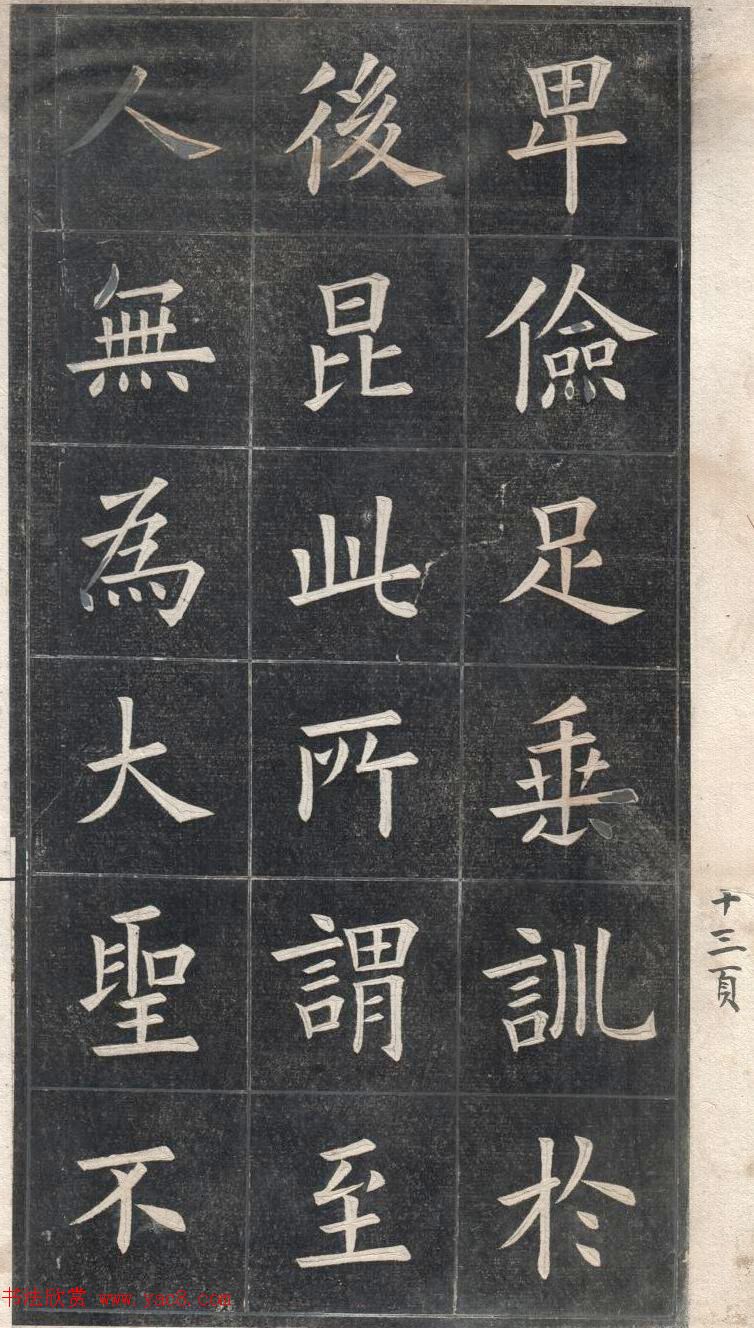 卑儉足垂訓於
後昆此所謂至
人無為大聖不
十三頁
书法欣赏 www.yac8.com